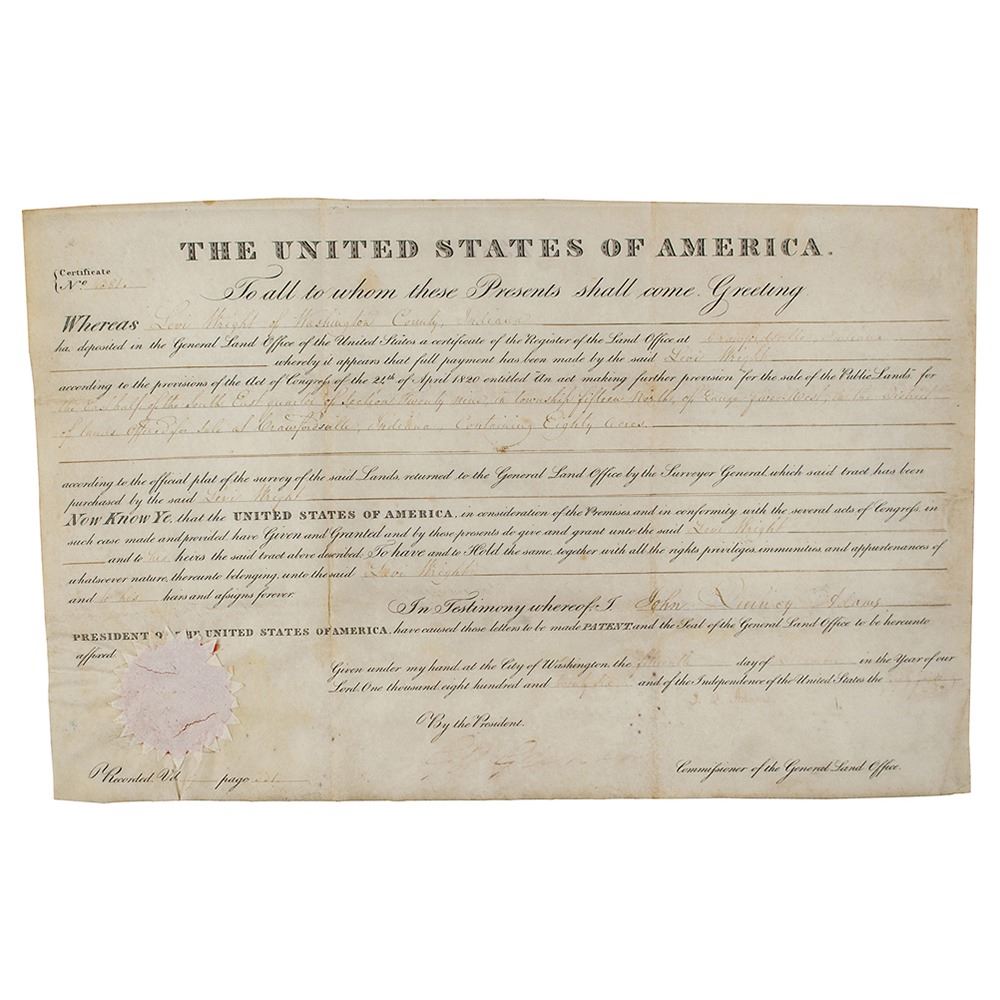 THE UNITED STATES OF AMERICA.
Certificate
No
To all to whom these Presents shall come Greeting
Whereas Levi Wright of Washington County, Indiana
ha, deposited in the General Land Office of the United States a certificate of the Register of the Land Office at Crawfordsville Indiana
whereby it appears that full payment has been made by the said Levi Wright
according to the provisions of the Act of Congress of the 24th of April 1820 entitled "An act making further provision for the sale of the Public Lands," for
the East half of the South East quarter of Section Twenty nine, in township fifteen North, of range four West, in the district
of lands Offered for Sale at Crawfordsville, Indiana Containing Eighty acres.
according to the official plat of the survey of the said Lands, returned to the General Land Office by the Surveyor General, which said tract has been
purchased by the said Levi Wright
Now Know Ye, that the UNITED STATES OF AMERICA, in consideration of the Premises, and in conformity with the several acts of Congress, in
such case made and provided, have Given and Granted and by these presents do give and grant unto the said Levi Wright
and to his heirs the said tract above described, To have and to Hold the same, together with all the rights privileges, immunities, and appurtenances of
whatsoever nature, thereunto belonging, unto the said Levi Wright
and to his heirs and assigns forever.
In Testimony whereof, I John Quincy Adams
PRESIDENT OF THE UNITED STATES OF AMERICA, have caused these letters to be made PATENT and the Seal of the General Land Office to be hereunto
affixed.
Given under my hand, at the City of Washington, the day of in the Year of our
Lord One thousand eight hundred and and of the Independence of the United States the
By the President.
Recorded Vol page
Commissioner of the General Land Office.